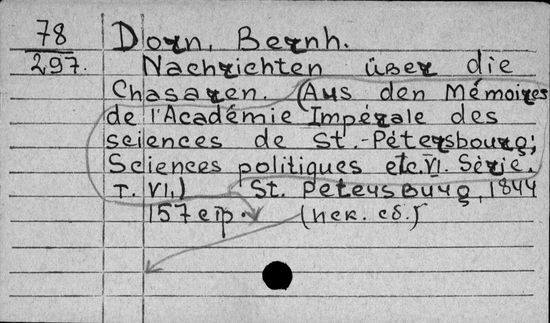 78
297.
Dorn, Bernh.
Nachrichten über die
Chasaren. (Aus den Mémoires
de l'Académie Impérale des
sciences de St.-Pétersbourg;
Sciences politiques etc. VI. Série.
T. VI.) St. Petersburg, 1844
157 стр.